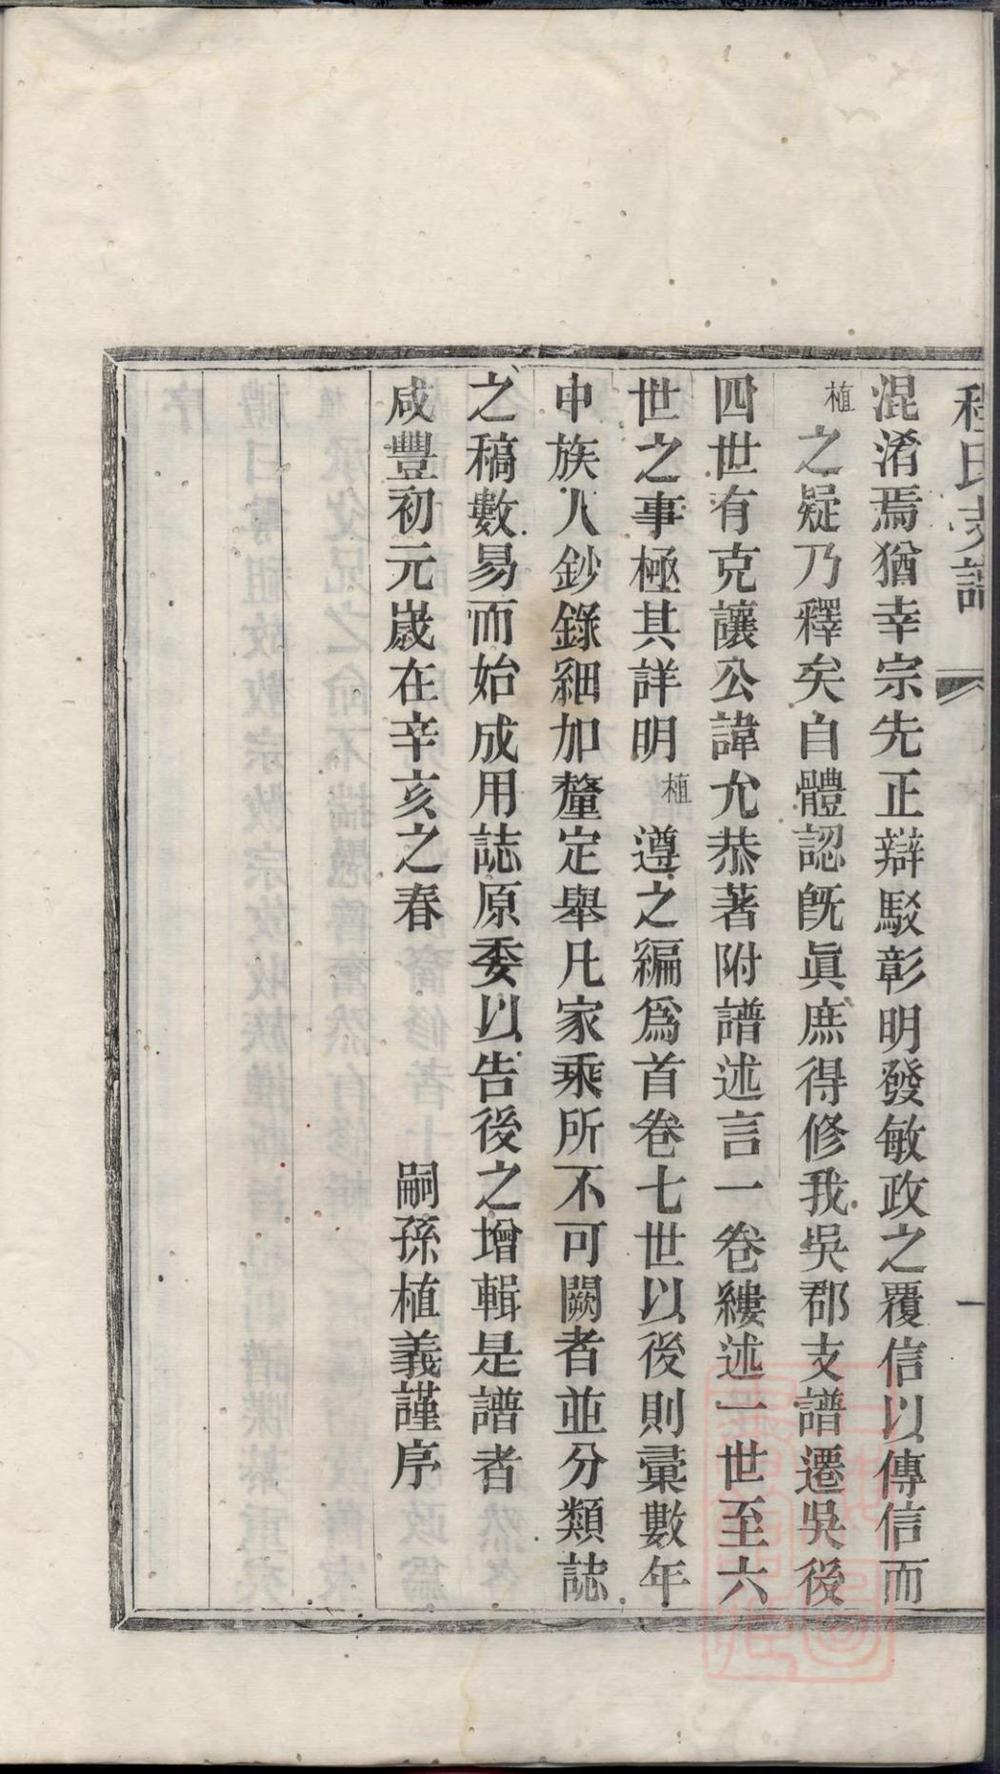 程氏支譜
一
混淆焉猶幸宗先正辯駁彰明發敏政之覆信以傳信而
植之疑乃釋矣自體認既眞庶得修我吳郡支譜遷吳後
四世有克讓公諱允恭著附譜述言一卷縷述一世至六
世之事極其詳明植遵之編爲首卷七世以後則彙數年
中族人鈔錄細加釐定舉凡家乘所不可闕者並分類誌
之稿數易而始成用誌原委以告後之增輯是譜者
咸豐初元歲在辛亥之春 嗣孫植義謹序